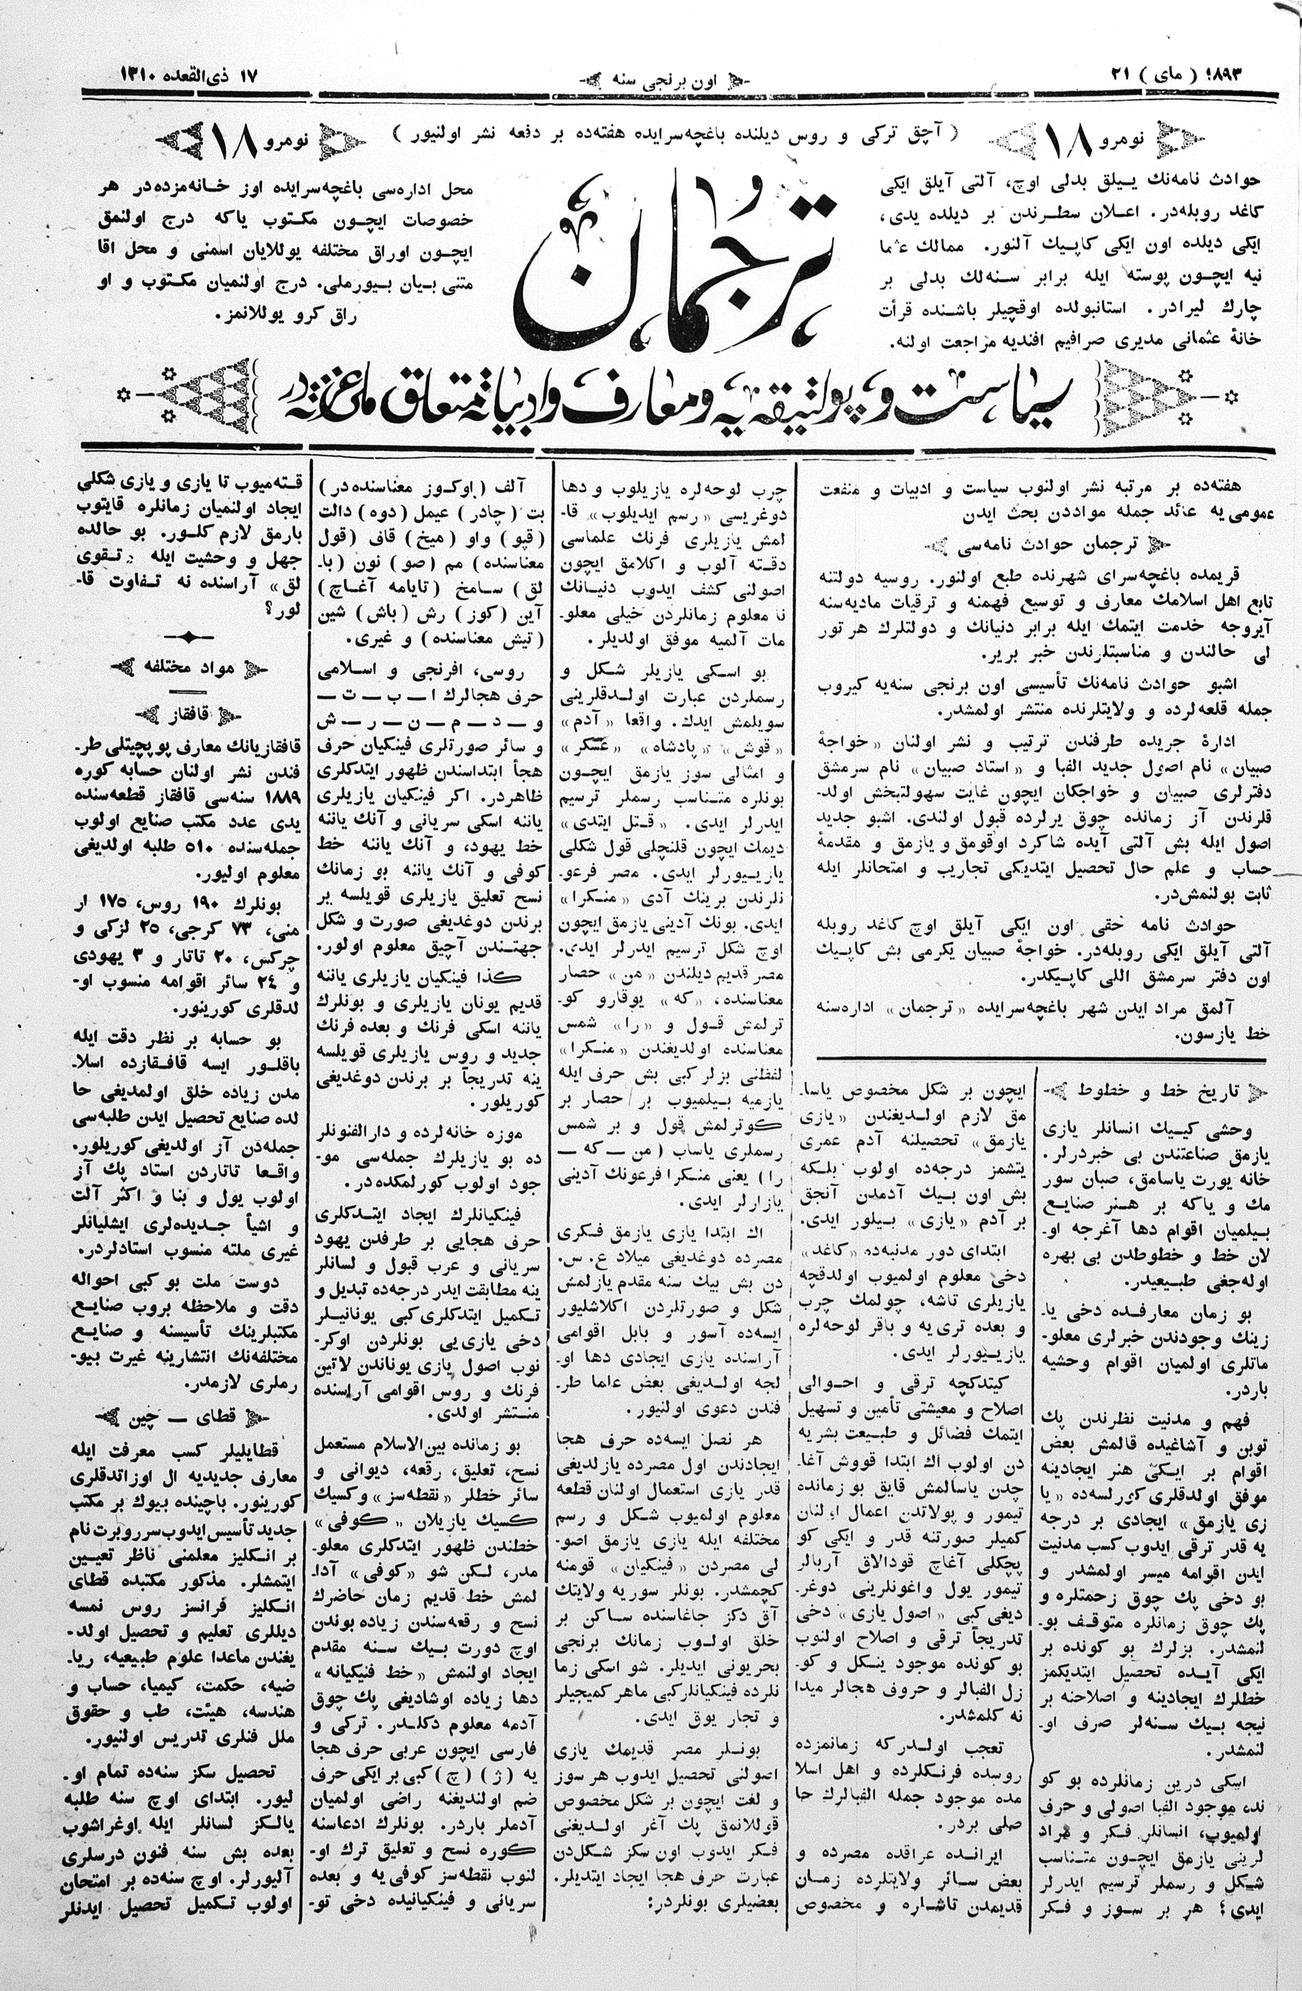 ١٨٩٣ ( مای ) ٢١
اون برنجی سنه
١٧ ذی القعده ١٣١٠
نومرو ١٨
( آچق ترکی و روس دیلنده باغچه‌سرایده هفته‌ده بر دفعه نشر اولنیور )
نومرو ١٨
حوادث نامه‌نك ییللق بدلی اوچ، آلتی آیلق ایکی
کاغد روبله‌در. اعلان سطرندن بر دیلده یدی،
ایکی دیلده اون ایکی کاپیك آلنور. ممالك عثما
نیه ایچون پوسته ایله برابر سنه‌لك بدلی بر
چارك لیرادر. استانبولده اوقچیلر باشنده قرأت
خانهٔ عثمانی مدیری صرافیم افندیه مراجعت اولنه.
ترجمان
محل اداره‌سی باغچه‌سرایده اوز خانه‌مزده‌در هر
خصوصات ایچون مکتوب یاکه درج اولنمق
ایچون اوراق مختلفه یوللایان اسمنی و محل اقا
متنی بیان بیورملی. درج اولنمیان مکتوب و او
راق کرو یوللانمز.
سیاست و پولتیقه‌یه و معارف و ادبیاته متعلق ملی غزته‌در
هفته‌ده بر مرتبه نشر اولنوب سیاست و ادبیات و منفعت
عمومی‌یه عائد جمله موادن بحث ایدن
ترجمان حوادث نامه‌سی
قریمده باغچه‌سرای شهرنده طبع اولنور. روسیه دولتنه
تابع اهل اسلامك معارف و توسیع فهمنه و ترقیات مادیه‌سنه
آیروجه خدمت ایتمك ایله برابر دنیانك و دولتلرك هر تور
لی حالندن و مناسبتلرندن خبر بریر.
اشبو حوادث نامه‌نك تأسیسی اون برنجی سنه‌یه کیروب
جمله قلعه‌لرده و ولایتلرنده منتشر اولمشدر.
ادارهٔ جریده طرفندن ترتیب و نشر اولنان «خواجهٔ
صبیان» نام اصول جدید الفبا و «استاد صبیان» نام سرمشق
دفترلری صبیان و خواجکان ایچون غایت سهولتبخش اولد-
قلرندن آز زمانده چوق یرلرده قبول اولندی. اشبو جدید
اصول ایله بش آلتی آیده شاکرد اوقومق و یازمق و مقدمهٔ
حساب و علم حال تحصیل ایتدیکی تجاریب و امتحانلر ایله
ثابت بولنمش‌در.
حوادث نامه حقی اون ایکی آیلق اوچ کاغد روبله
آلتی آیلق ایکی روبله‌در. خواجهٔ صبیان یکرمی بش کاپیك
اون دفتر سرمشق اللی کاپیکدر.
آلمق مراد ایدن شهر باغچه‌سرایده «ترجمان» اداره‌سنه
خط یازسون.
تاریخ خط و خطوط
وحشی کیـیك انسانلر یازی
یازمق صناعتندن بی خبردرلر.
خانه یورت یاسامق، صبان سور
مك و یاکه بر هنر صنایع
بیلمیان اقوام دها آغرجه او-
لان خط و خطوطدن بی بهره
اوله‌جغی طبیعیدر.
بو زمان معارفده دخی یا-
زینك وجودندن خبرلری معلو-
ماتلری اولمیان اقوام وحشیه
باردر.
فهم و مدنیت نظرندن پك
توبن و آشاغیده قالمش بعض
اقوام بر ایکی هنر ایجادینه
موفق اولدقلری کورلسه‌ده «یا
زی یازمق» ایجادی بر درجه
یه قدر ترقی ایدوب کسب مدنیت
ایدن اقوامه میسر اولمشدر و
بو دخی پك چوق زحمتلره و
پك چوق زمانلره متوقف بو-
لنمشدر. بزلرك بو کونده بر
ایکی آیده تحصیل ایتدیکمز
خطلرك ایجادینه و اصلاحنه بر
نیجه بیك سنه‌لر صرف او-
لنمشدر.
اسکی درین زمانلرده بو کو
نده موجود الفبا اصولی و حرف
اولمیوب، انسانلر فکر و مراد
لرینی یازمق ایچون متناسب
شکل و رسملر ترسیم ایدرلر
ایدی؛ هر بر سوز و فکر
ایچون بر شکل مخصوص یاسا-
مق لازم اولدیغندن «یازی
یازمق» تحصیلنه آدم عمری
یتشمز درجه‌ده اولوب بلکه
بش اون بیك آدمدن آنجق
بر آدم «یازی» بیلور ایدی.
ابتدای دور مدنیه‌ده «کاغد»
دخی معلوم اولمیوب اولدقچه
یازیلری تاشه، چولمك چرب
و بعده تری یه و باقر لوحه‌لره
یازیـیورلر ایدی.
کیتدکچه ترقی و احوالی
اصلاح و معیشتی تأمین و تسهیل
ایتمك فضائل و طبیعت بشریه
دن اولوب اك ابتدا قووش آغا-
چدن یاسالمش قایق بو زمانده
تیمور و پولاتدن اعمال اولنان
کمیلر صورتنه قدر و ایکی کو
پچکلی آغاچ قودالاق آربالر
تیمور یول واغونلرینی دوغر-
دیغی کبی «اصول یازی» دخی
تدریجاً ترقی و اصلاح اولنوب
بو کونده موجود ینکل و کو-
زل الفبالر و حروف هجالر میدا
نه کلمشدر.
تعجب اولدرکه زمانمزده
روسده فرنکلرده و اهل اسلا
مده موجود جمله الفبالرك حا
صلی بردر.
ایرانده عراقده مصرده و
بعض سائر ولایتلرده زمان
قدیمدن تاشاره و مخصوص
چرب لوحه‌لره یازیلوب و دها
دوغریسی «رسم ایدیلوب» قا-
لمش یازیلری فرنك علماسی
دقته آلوب و اکلامق ایچون
اصولنی کشف ایدوب دنیانك
نا معلوم زمانلردن خیلی معلو-
مات آلمیه موفق اولدیلر.
بو اسکی یازیلر شکل و
رسملردن عبارت اولدقلرینی
سویلمش ایدك. واقعا «آدم»
«قوش» «پادشاه» «عسکر»
و امثالی سوز یازمق ایچون
بونلره متناسب رسملر ترسیم
ایدرلر ایدی. «قتل ایتدی»
دیمك ایچون قلنچلی قول شکلی
یازیـیورلر ایدی. مصر فرعو-
نلرندن برینك آدی «منکرا»
ایدی. بونك آدینی یازمق ایچون
اوچ شکل ترسیم ایدرلر ایدی.
مصر قدیم دیلندن «من» حصار
معناسنده، «که» یوقارو کو-
ترلمش قول و «را» شمس
معناسنده اولدیغندن «منکرا»
لفظنی بزلر کبی بش حرف ایله
یازمیه بیلمیوب بر حصار بر
کوترلمش قول و بر شمس
رسملری یاساب (من — که —
را) یعنی منکرا فرعونك آدینی
یازارلر ایدی.
اك ابتدا یازی یازمق فکری
مصرده دوغدیغی میلاد ع.س.
دن بش بیك سنه مقدم یازلمش
شکل و صورتلردن اکلاشلیور
ایسه‌ده آسور و بابل اقوامی
آراسنده یازی ایجادی دها او-
لجه اولدیغی بعض علما طر-
فندن دعوی اولنیور.
هر نصل ایسه‌ده حرف هجا
ایجادندن اول مصرده یازلدیغی
قدر یازی استعمال اولنان قطعه
معلوم اولمیوب شکل و رسم
مختلفه ایله یازی یازمق اصو-
لی مصردن «فینکیان» قومنه
کچمشدر. بونلر سوریه ولایتك
آق دکز جاغاسنده ساکن بر
خلق اولوب زمانك برنجی
بحریونی ایدیلر. شو اسکی زما
نلرده فینکیانلر کبی ماهر کمیجیلر
و تجار یوق ایدی.
بونلر مصر قدیمك یازی
اصولنی تحصیل ایدوب هر سوز
و لغت ایچون بر شکل مخصوص
قوللانمق پك آغر اولدیغنی
فکر ایدوب اون سکز شکل‌دن
عبارت حرف هجا ایجاد ایتدیلر.
بعضیلری بونلردر:
آلف (اوکوز معناسنده در)
بت (چادر) عیمل (دوه) دالت
(قپو) واو (میخ) قاف (قول
معناسنده) مم (صو) نون (با-
لق) سامخ (تایامه آغاچ)
آین (کوز) رش (باش) شین
(تیش معناسنده) و غیری.
روسی، افرنجی و اسلامی
حرف هجالرك ا — ب — ت —
و — د — م — ن — ر — ش
و سائر صورتلری فینکیان حرف
هجأ ابتداسندن ظهور ایتدکلری
ظاهردر. اکر فینکیان یازیلری
یاننه اسکی سریانی و آنك یاننه
خط یهود، و آنك یاننه خط
کوفی و آنك یاننه بو زمانك
نسح تعلیق یازیلری قویلسه بر
برندن دوغدیغی صورت و شکل
جهتندن آچیق معلوم اولور.
کذا فینکیان یازیلری یاننه
قدیم یونان یازیلری و بونلرك
یاننه اسکی فرنك و بعده فرنك
جدید و روس یازیلری قویلسه
ینه تدریجاً بر برندن دوغدیغی
کوریلور.
موزه خانه‌لرده و دار الفنونلر
ده بو یازیلرك جمله‌سی مو-
جود اولوب کورلمکده‌در.
فینکیانلرك ایجاد ایتدکلری
حرف هجایی بر طرفدن یهود
سریانی و عرب قبول و لسانلر
ینه مطابقت ایدر درجه‌ده تبدیل و
تکمیل ایتدکلری کبی یونانیلر
دخی یازی‌یی بونلردن اوکر-
نوب اصول یازی یوناندن لاتین
فرنك و روس اقوامی آراسنده
منتشر اولدی.
بو زمانده بین‌الاسلام مستعمل
نسح، تعلیق، رقعه، دیوانی و
سائر خطلر «نقطه‌سز» و کسیك
کسیك یازیلان «کوفی»
خطندن ظهور ایتدکلری معلو-
مدر، لکن شو «کوفی» آدا-
لمش خط قدیم زمان حاضرك
نسح و رقعه‌سندن زیاده بوندن
اوچ دورت بیك سنه مقدم
ایجاد اولنمش «خط فنیکیانه»
دها زیاده اوشادیغی پك چوق
آدمه معلوم دکلدر. ترکی و
فارسی ایچون عربی حرف هجا
یه (ژ) (چ) کبی بر ایکی حرف
ضم اولندیغنه راضی اولمیان
آدملر باردر. بونلرك ادعاسنه
کوره نسح و تعلیق ترك او-
لنوب نقطه‌سز کوفی یه و بعده
سریانی و فینکیانیده دخی تو-
قته‌میوب تا یازی و یازی شکلی
ایجاد اولنمیان زمانلره قایتوب
بارمق لازم کلور. بو حالده
جهل و وحشیت ایله «تقوی
لق» آراسنده نه تفاوت قا-
لور؟
مواد مختلفه
قافقاز
قافقازیانك معارف پوپچیتلی طر-
فندن نشر اولنان حسابه کوره
١٨٨٩ سنه‌سی قافقاز قطعه‌سنده
یدی عدد مکتب صنایع اولوب
جمله‌سنده ٥١٠ طلبه اولدیغی
معلوم اولیور.
بونلرك ١٩٠ روس، ١٧٥ ار
منی، ٧٣ کرجی، ٢٥ لزکی و
چرکس، ٢٠ تاتار و ٣ یهودی
و ٢٤ سائر اقوامه منسوب او-
لدقلری کورینور.
بو حسابه بر نظر دقت ایله
باقلور ایسه قافقازده اسلا-
مدن زیاده خلق اولمدیغی حا
لده صنایع تحصیل ایدن طلبه‌سی
جمله‌دن آز اولدیغی کوریلور.
واقعا تاتاردن استاد پك آز
اولوب یول و بنا و اکثر آلت
و اشیأ جدیده‌لری ایشلیانلر
غیری ملته منسوب استادلردر.
دوست ملت بو کبی احواله
دقت و ملاحظه بروب صنایع
مکتبلرینك تأسیسنه و صنایع
مختلفه‌نك انتشارینه غیرت بیو-
رملری لازمدر.
قطای — چین
قطایلیلر کسب معرفت ایله
معارف جدیدیه ال اوزاتدقلری
کورینور. باچینده بیوك بر مکتب
جدید تأسیس ایدوب سر روبرت نام
بر انکلیز معلمنی ناظر تعیین
ایتمشلر. مذکور مکتبده قطای
انکلیز فرانسز روس نمسه
دیللری تعلیم و تحصیل اولد-
یغندن ماعدا علوم طبیعیه، ریا-
ضیه، حکمت، کیمیا، حساب و
هندسه، هیئت، طب و حقوق
ملل فنلری تدریس اولنیور.
تحصیل سکز سنه‌ده تمام او-
لیور. ابتدای اوچ سنه طلبه
یالکز لسانلر ایله اوغراشوب
بعده بش سنه فنون درسلری
آلیورلر. اوچ سنه‌ده بر امتحان
اولوب تکمیل تحصیل ایدنلر